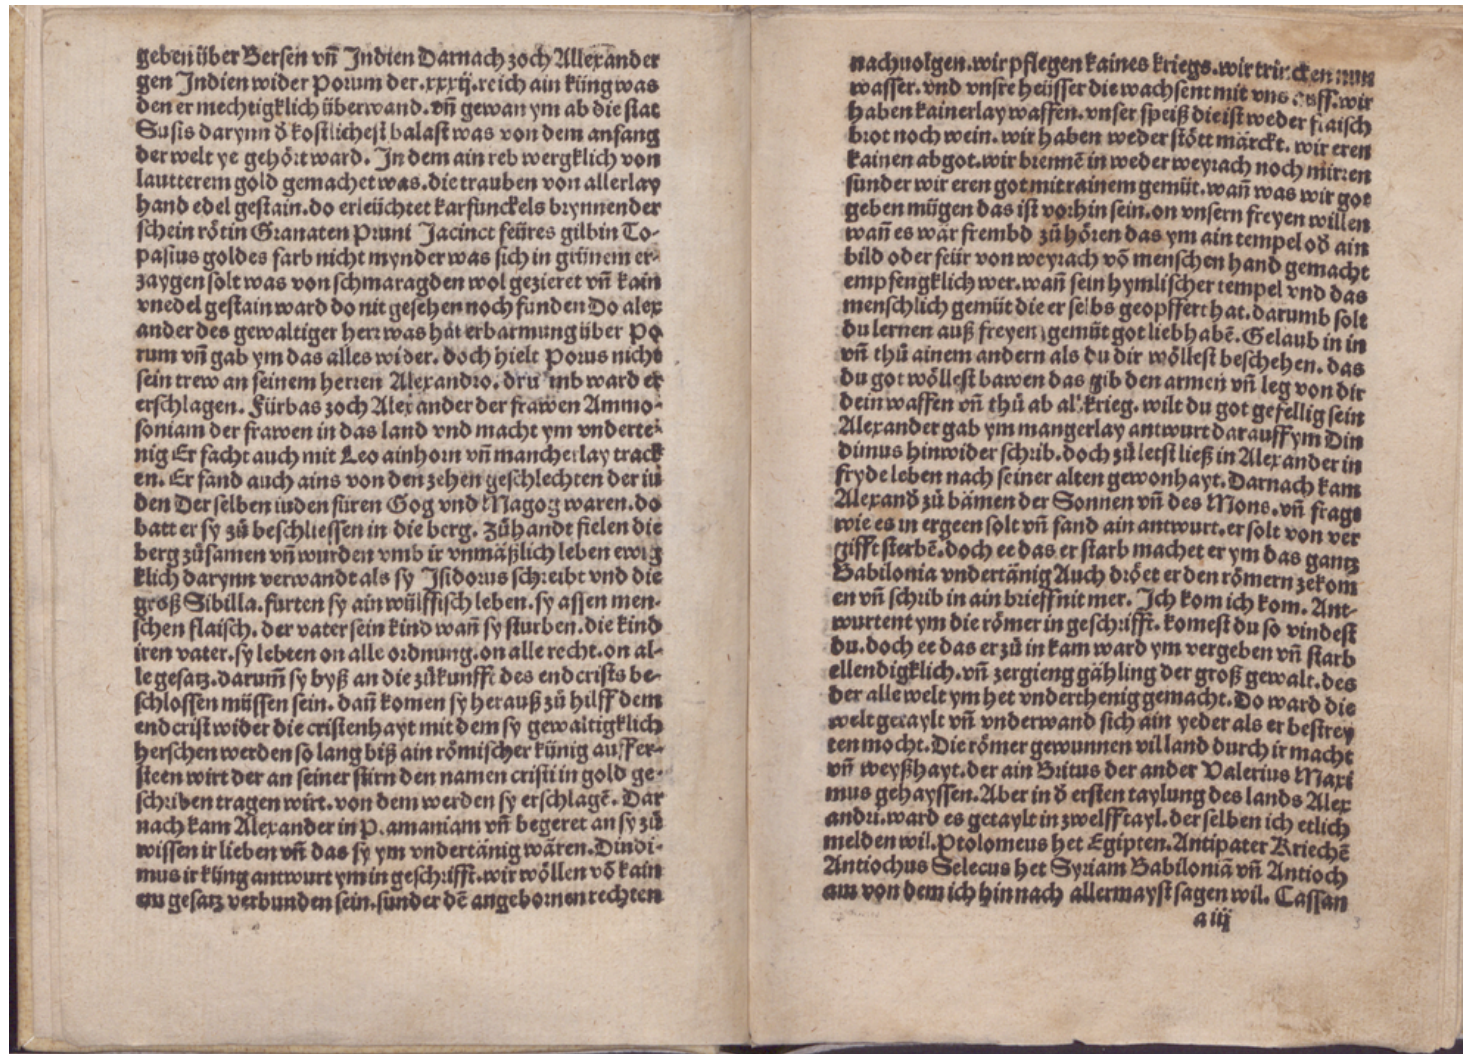 geben über Bersen vñ Indien Darnach zoch Allexander
gen Indien wider Porum der .xxxij. reich ain küng was
den er mechtigklich überwand. vñ gewan ym ab die stat
Susis darynn d̕ kostlichest balast was von dem anfang
der welt ye gehört ward. In dem ain reb wergklich von
lautterem gold gemachet was. die trauben von allerlay
hand edel gestain. do erleüchtet karfunckels brynnender
schein rötin Granaten Pruni Jacinct feüres gilbin To-
pasius goldes farb nicht mynder was sich in grünem er-
zaygen solt was von schmaragden wol gezieret vñ kain
vnedel gestain ward do nit gesehen noch funden Do alex
ander des gewaltiger herr was hat erbarmung über Po
rum vñ gab ym das alles wider. doch hielt Porus nicht
sein trew an seinem herren Alexandro. drumb ward er
erschlagen. Fürbas zoch Alexander der frawen Ammo-
soniam der frawen in das land vnd macht ym vnderte-
nig Er facht auch mit Leo ainhorn vñ mancherlay track
en. Er fand auch ains von den zehen geschlechten der iu
den Der selben iuden füren Gog vnd Magog waren. do
batt er sy zů beschliessen in die berg. Zůhandt fielen die
berg zůsamen vñ wurden vmb ir vnmäßlich leben ewig
klich darynn verwandt als sy Isidorus schreibt vnd die
groß Sibilla. fürten sy ain wülffisch leben. sy assen men-
schen flaisch. der vater sein kind wañ sy sturben. die kind
iren vater. sy lebten on alle ordnung. on alle recht. on al-
le gesatz. darum̃ sy byß an die zůkunfft des endcrists be-
schlossen müssen sein. dañ komen sy herauß zů hilff dem
endcrist wider die cristenhayt mit dem sy gewaltigklich
herschen werden so lang biß ain römischer künig auffer-
steen wirt der an seiner stirn den namen cristi in gold ge-
schriben tragen wirt. von dem werden sy erschlagẽ. Dar
nach kam Alexander in Pramaniam vñ begeret an sy zů
wissen ir lieben vñ das sy ym vndertänig wären. Dindi-
mus ir küng antwurt ym in geschrifft. wir wöllen võ kain
em gesatz verbunden sein. sunder dẽ angebornen rechten
nachuolgen. wir pflegen kaines kriegs. wir trincken nun
wasser. vnd vnsre heüsser die wachsent mit vns auff. wir
haben kainerlay waffen. vnser speiß die ist weder flaisch
brot noch wein. wir haben weder stött märckt. wir eren
kainen abgot. wir brennẽ in weder weyrach noch mirren
sunder wir eren got mit rainem gemüt. wañ was wir got
geben mügen das ist vorhin sein. on vnsern freyen willen
wañ es wär frembd zů hören das ym ain tempel od̕ ain
bild oder feür von weyrach võ menschen hand gemacht
empfengklich wer. wañ sein hymlischer tempel vnd das
menschlich gemüt die er selbs geopffert hat. darumb solt
du lernen auß freyen gemüt got lieb habẽ. Gelaub in in
vñ thů ainem andern als du dir wöllest beschehen. das
du got wöllest bawen das gib den armen vñ leg von dir
dein waffen vñ thů ab al krieg. wilt du got gefellig sein
Alexander gab ym mangerlay antwurt darauff ym Din
dimus hinwider schrib. doch zů letst ließ in Alexander in
fryde leben nach seiner alten gewonhayt. Darnach kam
Alexand̕ zů bämen der Sonnen vñ des Mons. vñ fragt
wie es in ergeen solt vñ fand ain antwurt. er solt von ver
gifft sterbẽ. doch ee das er starb machet er ym das gantz
Babilonia vndertänig Auch dröet er den römern ze kom
en vñ schrib in ain brieff nit mer. Ich kom ich kom. Ant-
wurtent ym die römer in geschrifft. komest du so vindest
du. doch ee das er zů in kam ward ym vergeben vñ starb
ellendigklich. vñ zergieng gähling der groß gewalt. des
der alle welt ym het vnderthenig gemacht. Do ward die
welt getaylt vñ vnderwand sich ain yeder als er bestrey
ten mocht. Die römer gewunnen vil land durch ir macht
vñ weyßhayt. der ain Britus der ander Valerius Maxi
mus gehayssen. Aber in d̕ ersten taylung des lands Alex
andri. ward es getaylt in zwelff tayl. der selben ich etlich
melden wil. Ptolomeus het Egipten. Antipater Kriechẽ
Antiochus Selecus het Syriam Babiloniã vñ Antioch
am von dem ich hin nach allermayst sagen wil. Cassan
a iij
3